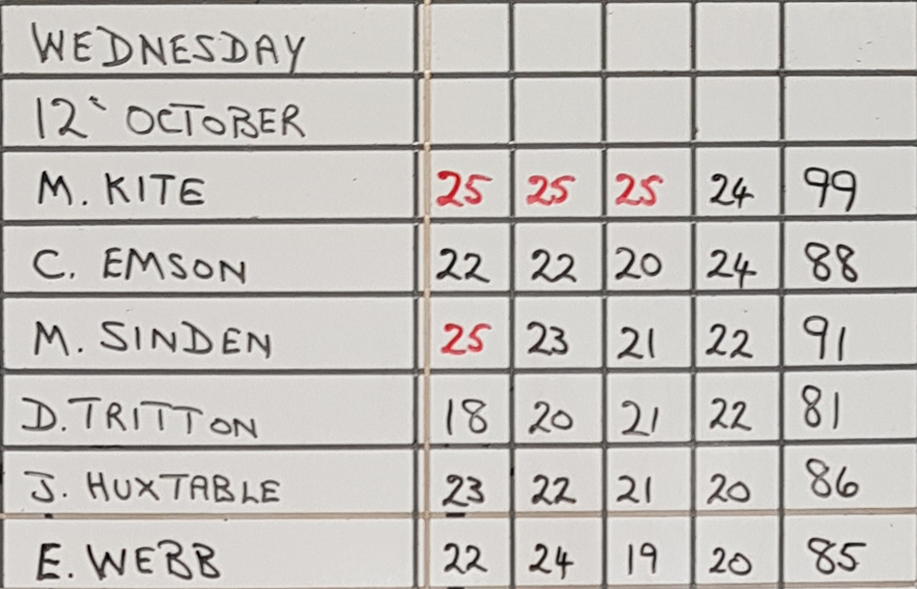 WEDNESDAY
12` OCTOBER
M. KITE 25 25 25 24 99
C. EMSON 22 22 20 24 88
M. SINDEN 25 23 21 22 91
D. TRITTON 18 20 21 22 81
J. HUXTABLE 23 22 21 20 86
E. WEBB 22 24 19 20 85